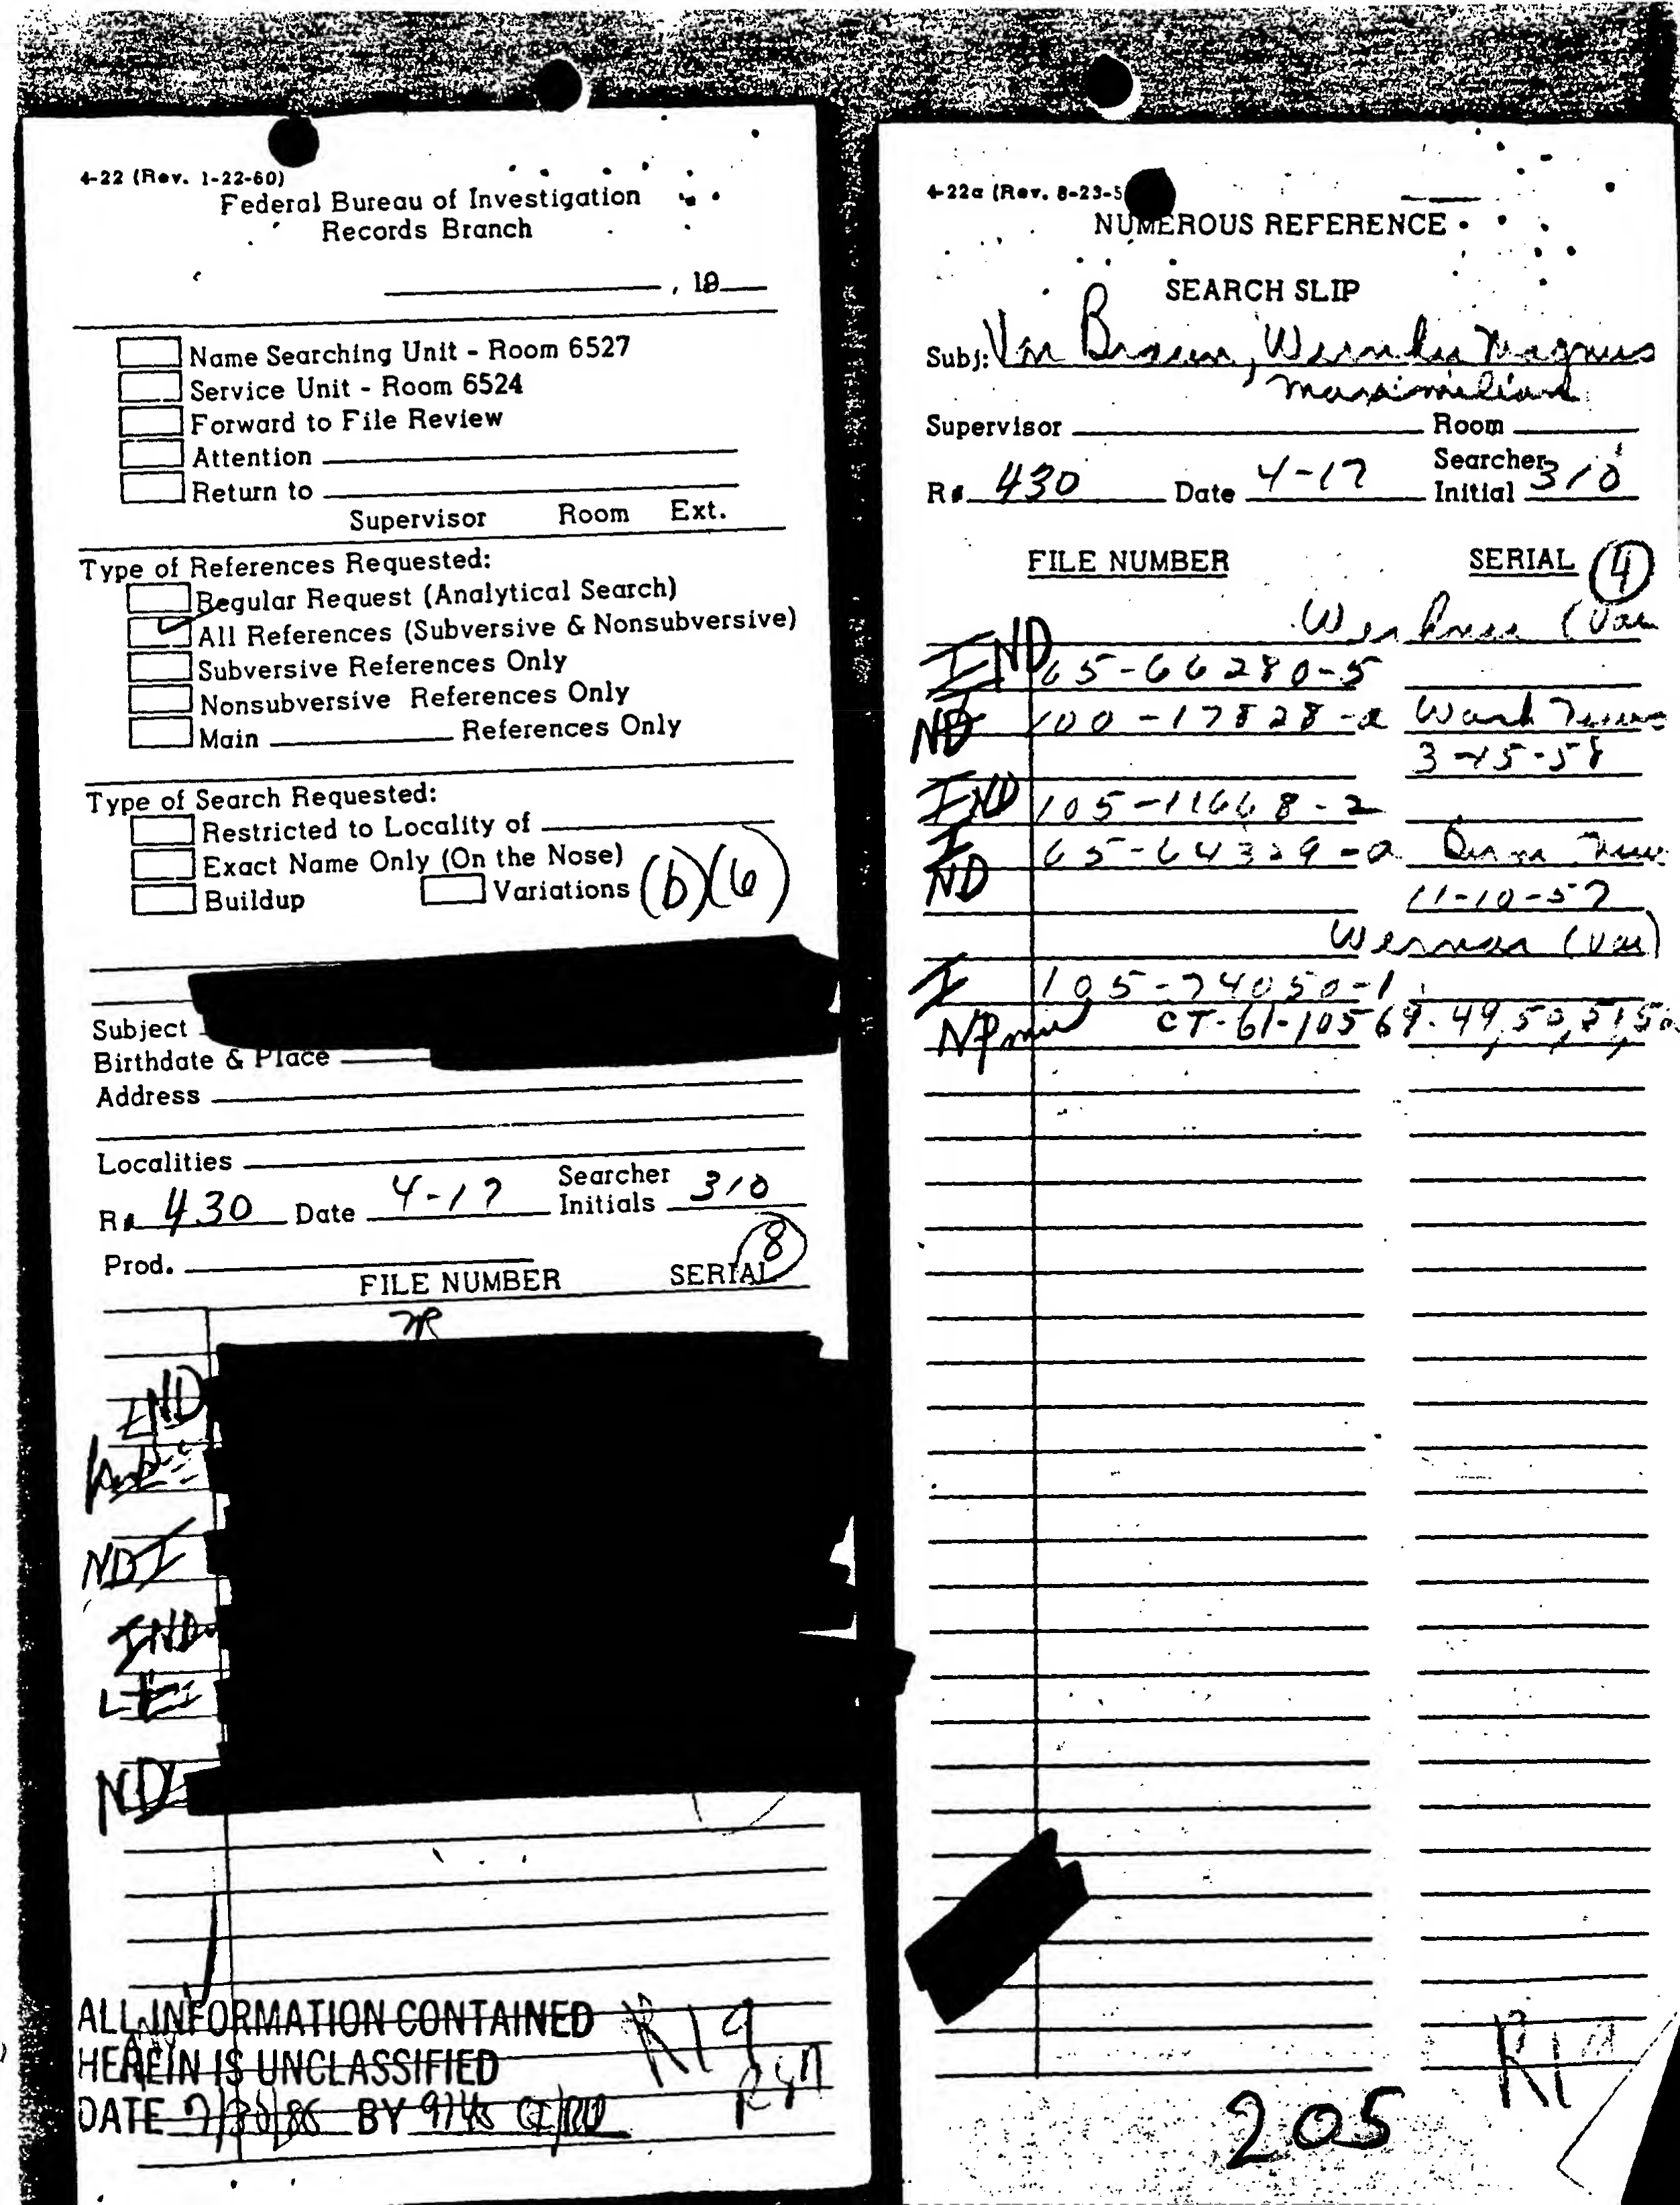 4-22 (Rev. 1-22-60)
Federal Bureau of Investigation
Records Branch
, 19
Name Searching Unit - Room 6527
Service Unit - Room 6524
Forward to File Review
Attention
Return to
Supervisor Room Ext.
Type of References Requested:
Regular Request (Analytical Search)
All References (Subversive & Nonsubversive)
Subversive References Only
Nonsubversive References Only
Main References Only
Type of Search Requested:
Restricted to Locality of
Exact Name Only (On the Nose)
Buildup Variations (b)(6)
Subject
Birthdate & Place
Address
Localities
R# 430 Date 4-17 Searcher Initials 310
Prod.
8
FILE NUMBER SERIAL
NR
IND
NDI
IND
ND
ALL INFORMATION CONTAINED
HEREIN IS UNCLASSIFIED
DATE BY
R19
4-22a (Rev. 8-23-5
NUMEROUS REFERENCE
SEARCH SLIP
Subj: Von Braun, Wernher Magnus
Maximilian
Supervisor Room
R# 430 Date 4-17 Searcher Initial 310
FILE NUMBER SERIAL 4
IND 65-66280-5
ND 100-17828-a Wash News
3-15-58
IND 105-11668-2
I 65-64329-a
ND 11-10-57
Wernar (Var)
I 105-74050-1
CT-61-10569-49,50,51,
205